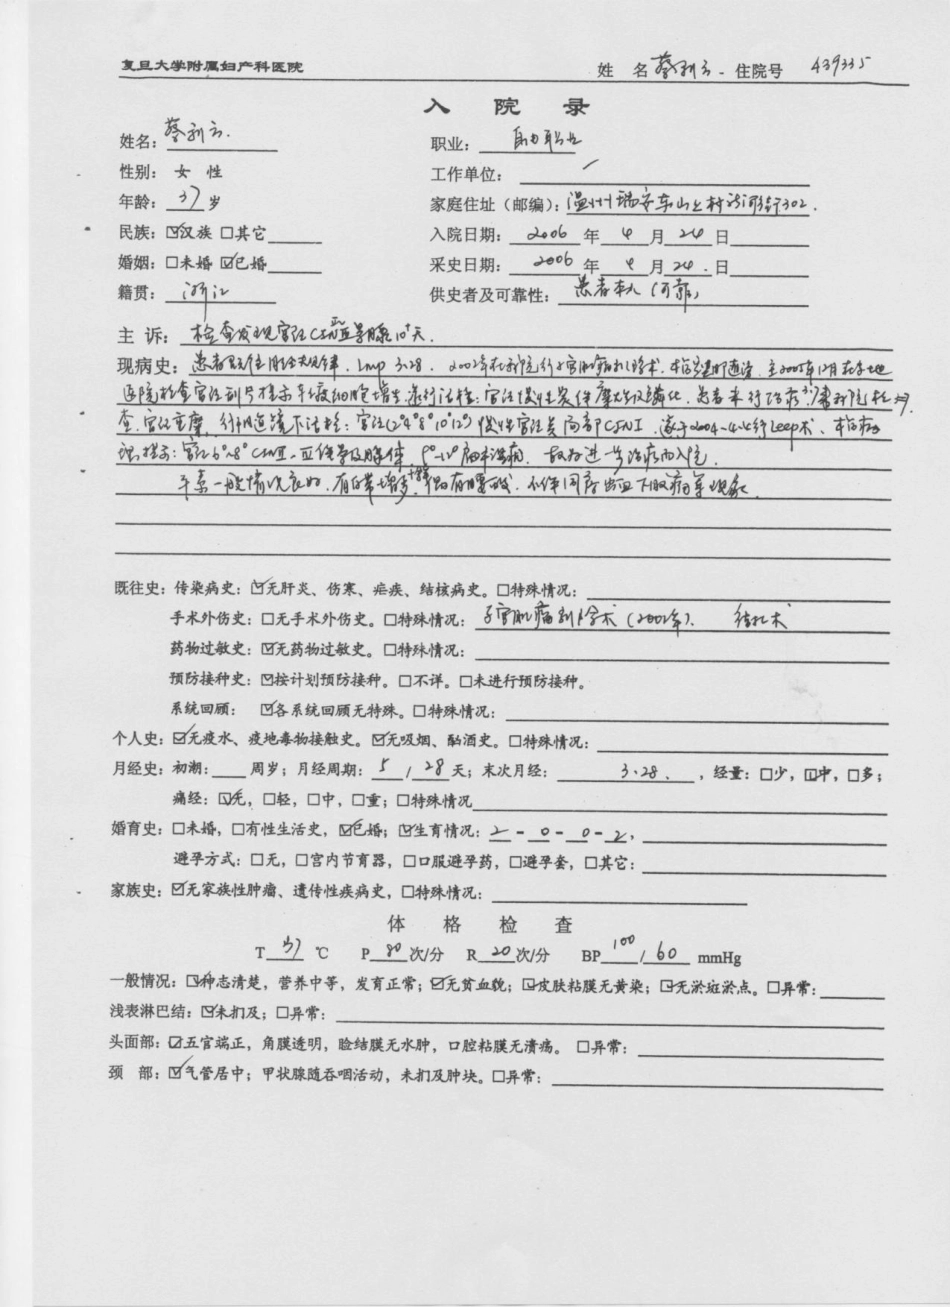 复旦大学附属妇产科医院 姓 名 蔡利云 住院号 439335
入 院 录
姓名: 蔡利云. 职业: 自由职业
性别: 女 性 工作单位: /
年龄: 37 岁 家庭住址(邮编): 温州瑞安东山上村 302.
民族: ☑汉族 □其它 入院日期: 2006 年 4 月 24 日
婚姻: □未婚 ☑已婚 采史日期: 2006 年 4 月 24 . 日
籍贯: 浙江 供史者及可靠性: 患者本人(可靠)
主 诉: 检查发现宫颈CIN 累腺10+天.
现病史: 患者既往月经规律. Lmp 3.28. 2002年在我院行子宫肌瘤 术. 2005年12月在当地
医院检查宫颈刮片提示 细胞增生. 行活检: 宫颈慢性炎伴 鳞化. 患者未行治疗. 我院检
查. 宫颈 , 行阴道镜下活检: 宫颈(2°4°8°10°12°) 慢性宫颈炎 局部CIN I. 遂于2006-4-4行Leep术.
提示: 宫颈6°-8° CINII-III 伴累及腺体 . 故为进一步治疗而入院.
平素一般情况良好, 有白带增多 有腰酸. 不伴同房出血下腹痛等现象.
既往史: 传染病史: ☑无肝炎、伤寒、疟疾、结核病史。□特殊情况:
手术外伤史: □无手术外伤史。□特殊情况: 子宫肌瘤剔除术 (2002年). 结扎术
药物过敏史: ☑无药物过敏史。□特殊情况:
预防接种史: ☑按计划预防接种。□不详。□未进行预防接种。
系统回顾: ☑各系统回顾无特殊。□特殊情况:
个人史: ☑无疫水、疫地毒物接触史。☑无吸烟、酗酒史。□特殊情况:
月经史: 初潮: 周岁; 月经周期: 5 / 28 天; 末次月经: 3.28. , 经量: □少, ☑中, □多;
痛经: ☑无, □轻, □中, □重; □特殊情况
婚育史: □未婚, □有性生活史, ☑已婚; ☑生育情况: 2 - 0 - 0 - 2,
避孕方式: □无, □宫内节育器, □口服避孕药, □避孕套, □其它:
家族史: ☑无家族性肿瘤、遗传性疾病史, □特殊情况:
体 格 检 查
T 37 ℃ P 80 次/分 R 20 次/分 BP 100 / 60 mmHg
一般情况: ☑神志清楚, 营养中等, 发育正常; ☑无贫血貌; ☑皮肤粘膜无黄染; ☑无淤斑淤点。□异常:
浅表淋巴结: ☑未扪及; □异常:
头面部: ☑五官端正, 角膜透明, 睑结膜无水肿, 口腔粘膜无溃疡。 □异常:
颈 部: ☑气管居中; 甲状腺随吞咽活动, 未扪及肿块。□异常: